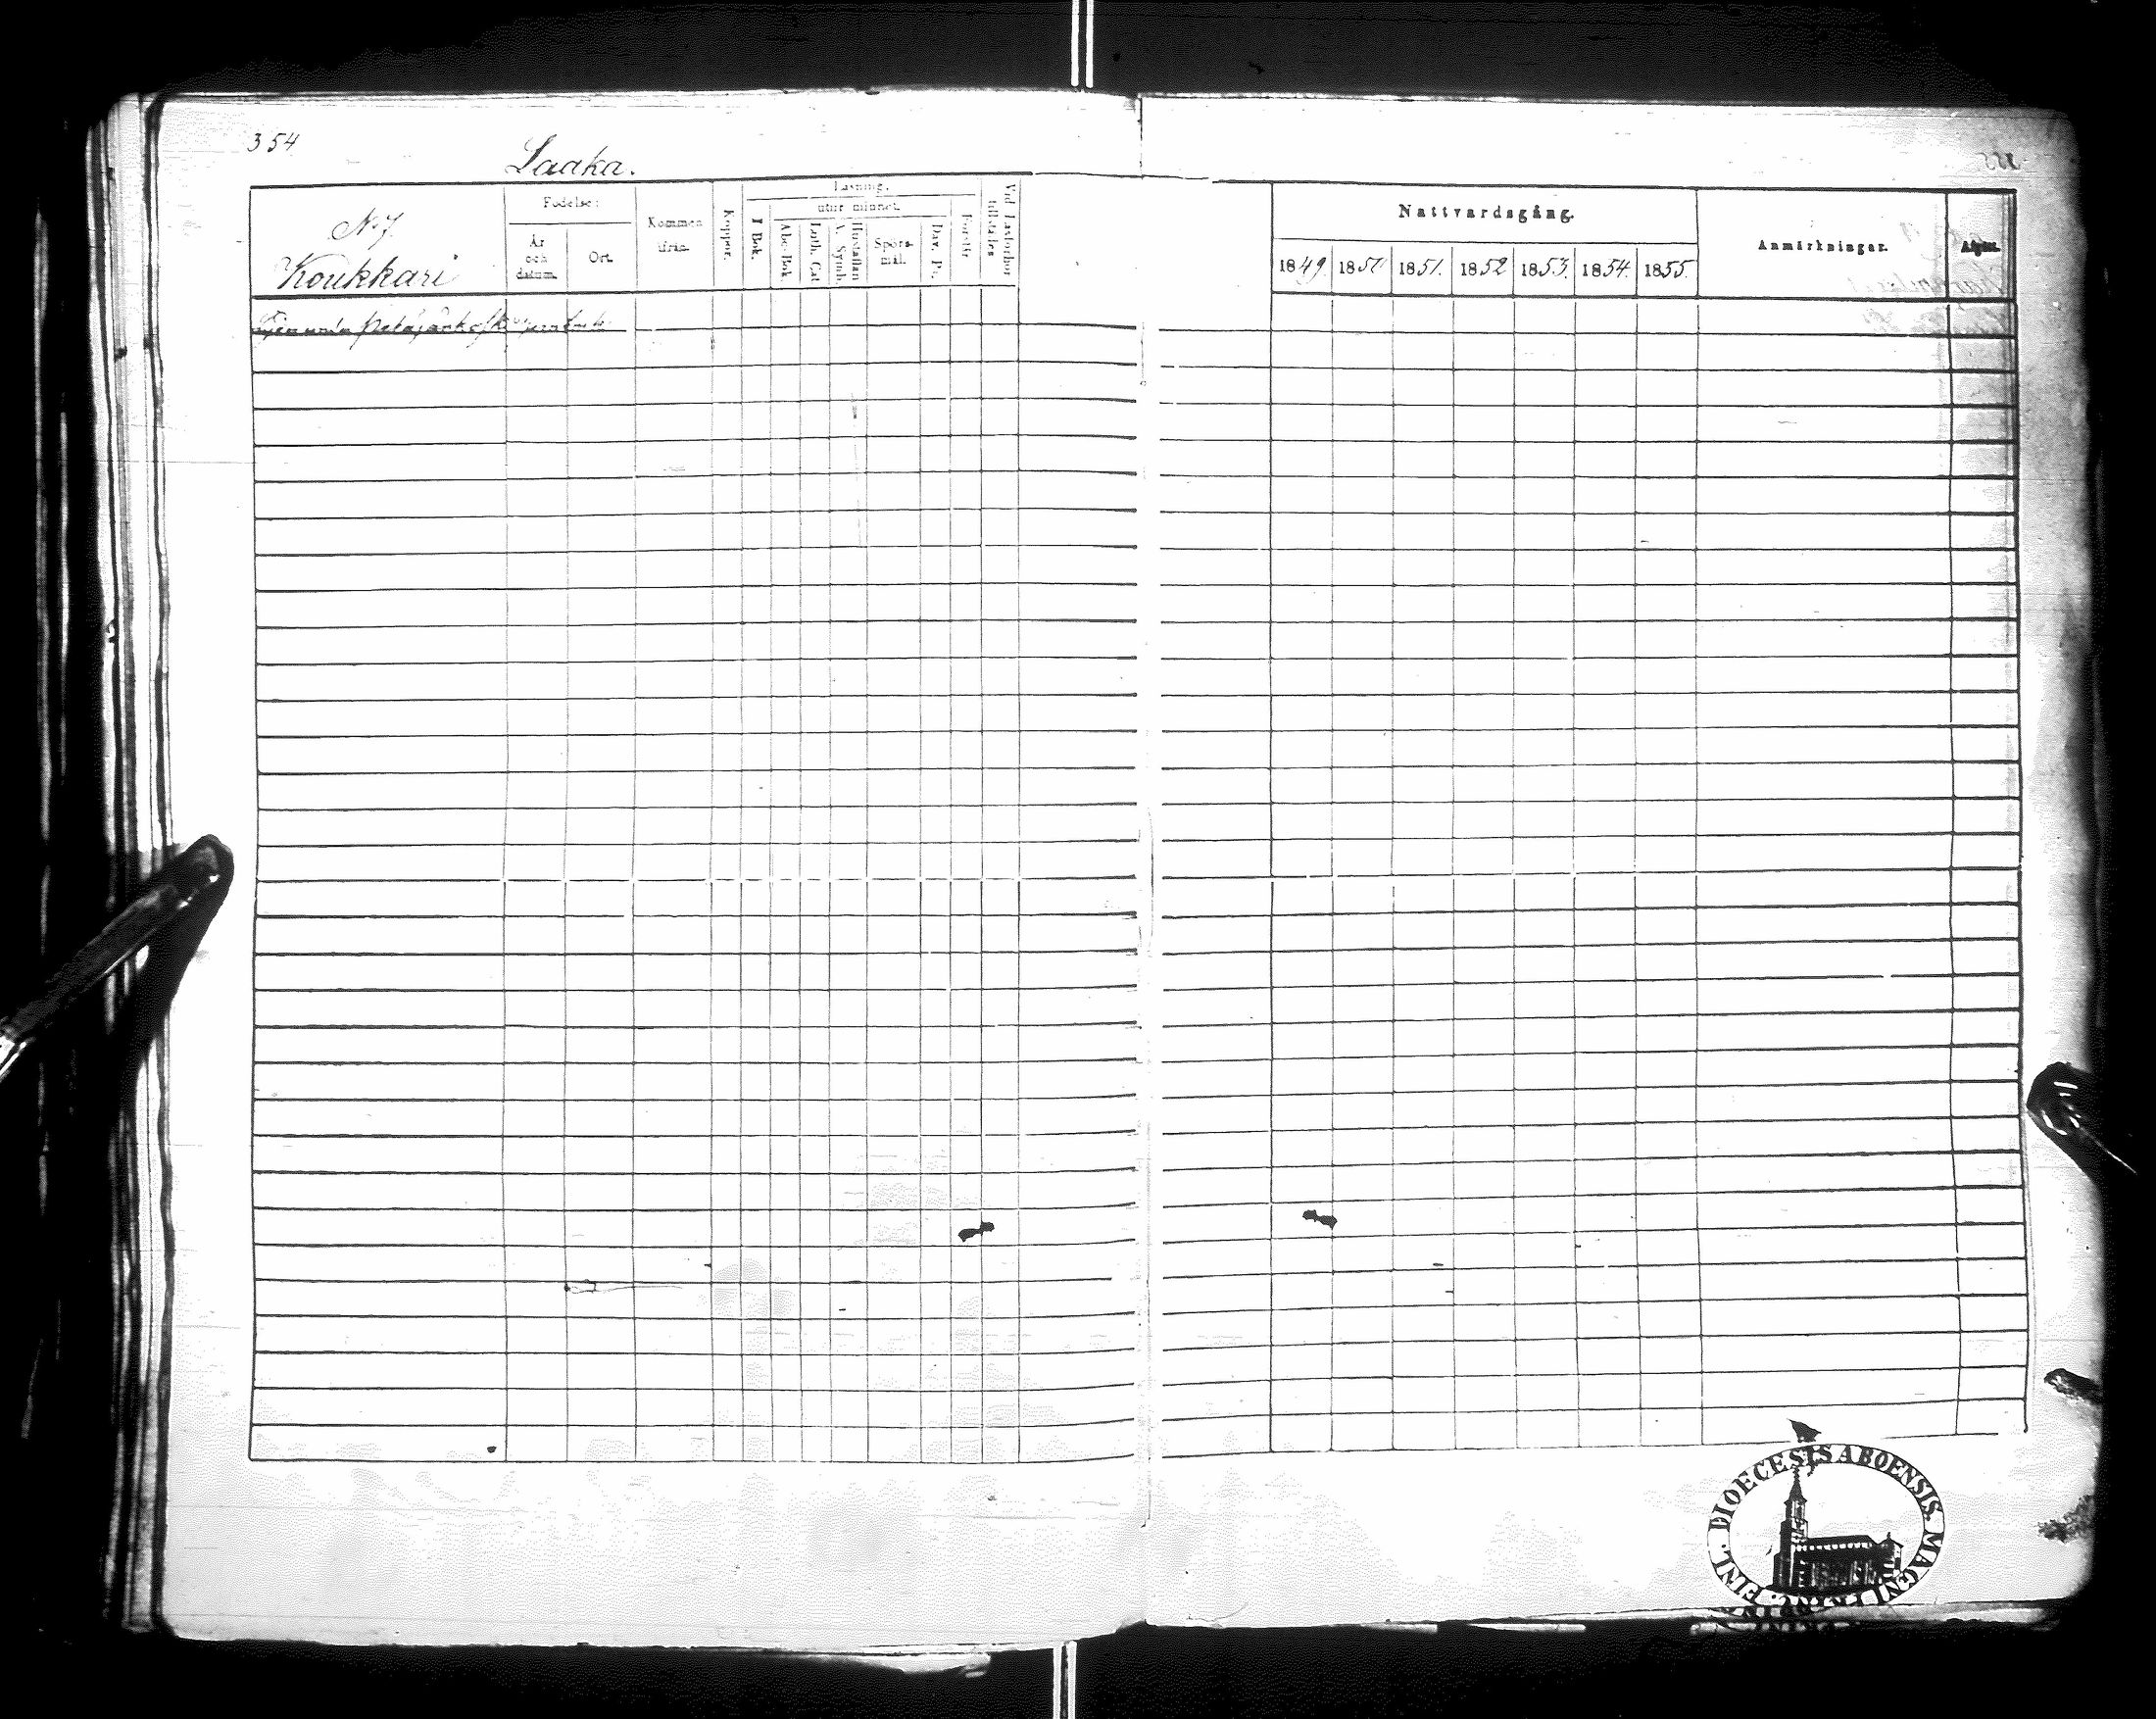 354
Laaka.
No 7
Koukkari
Födelse:
År och datum.
Ort.
Kommen ifrån.
Koppor.
Läsning.
utur minnet.
I Bok.
Abc-Bok
Luth. Cat
Hustaflan A. Symb.
Spörsmål.
Dav. Ps.
Förstår
Vid Läsförhör tillstädes
Nattvardsgång.
1849. 1850 1851. 1852 1853. 1854. 1855.
Anmärkningar.
Afgått.
DIOECESIS ABOENSIS, MAGNI PRINC. FINL.